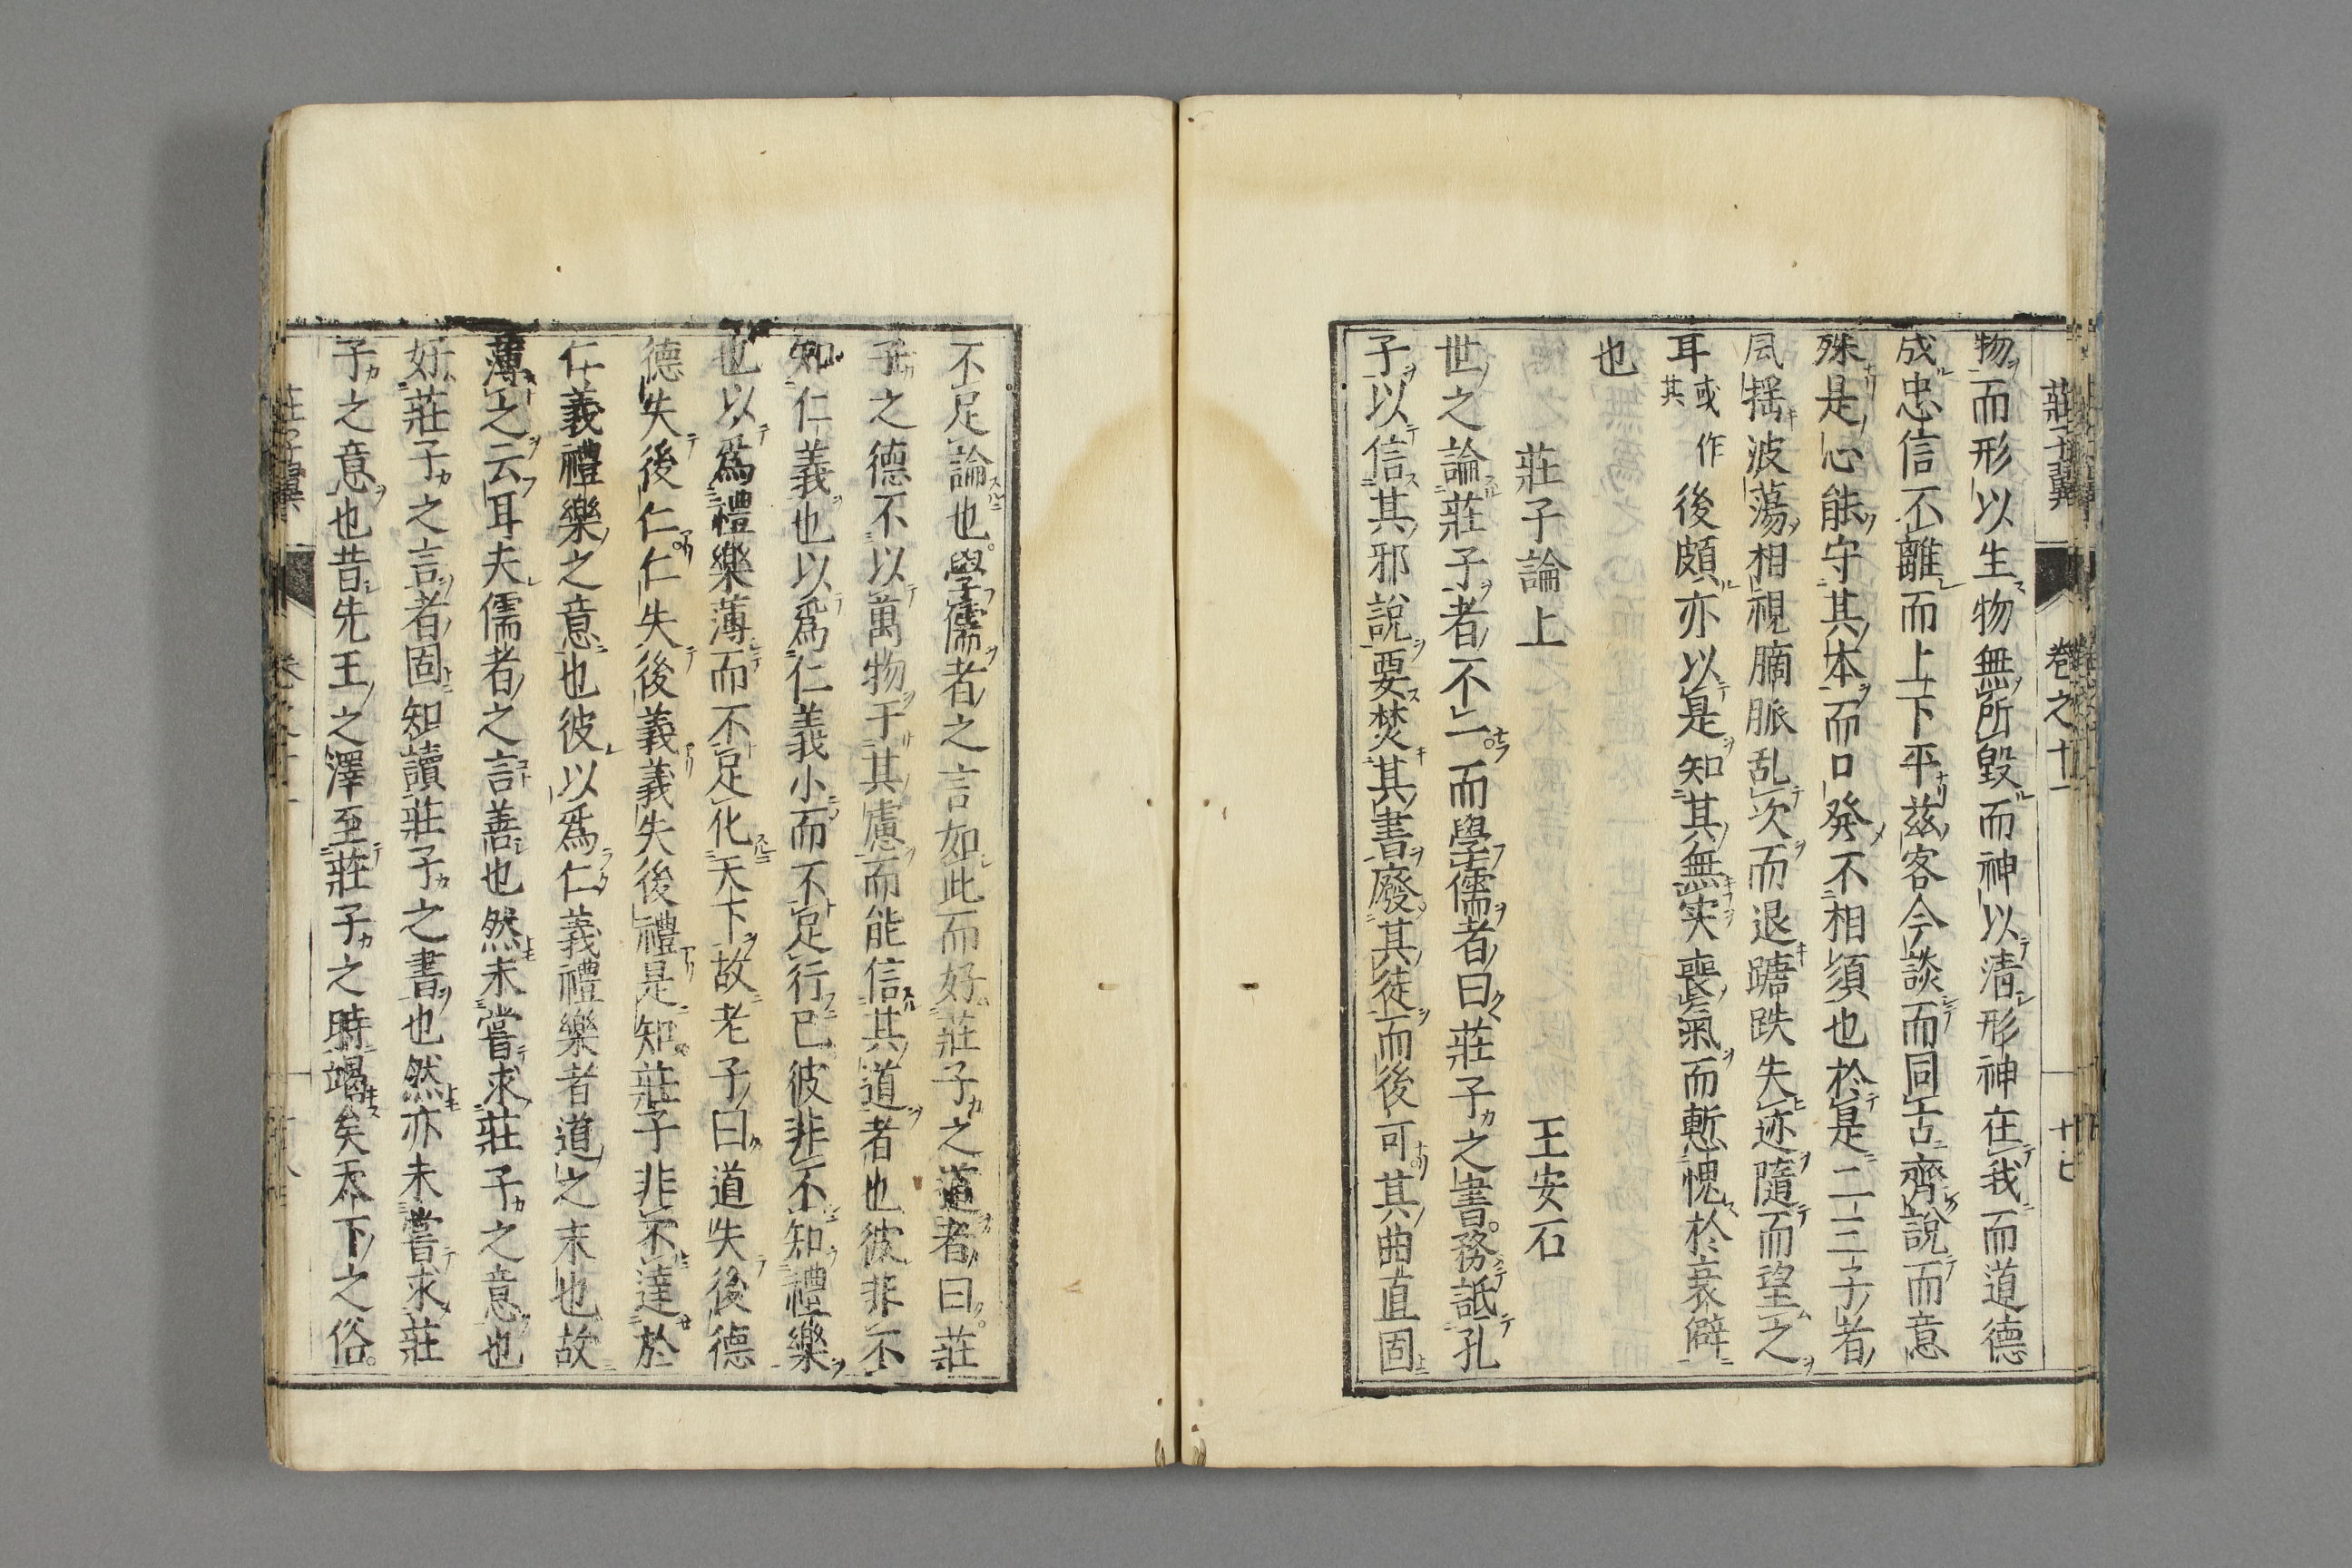 莊子翼 卷之十一 廿七
物而形以生物無所毀而神以清形神在我而道德
成忠信不離而上下平茲客今談而同古齊說而意
殊是心能守其本而口発不相須也於是二三子者
風揺波蕩相視𦟛脈乱次而退踣跌失迹隨而望之
耳或作其後頗亦以是知其無実喪氣而慙愧於衰僻
也
莊子論上 王安石
世之論莊子者不一而學儒者曰莊子之書務詆孔
子以信其邪說要焚其書廢其徒而後可其曲直固
不足論也學儒者之言如此而好莊子之道者曰莊
子之德不以萬物于其慮而能信其道者也彼非不
知仁義也以爲仁義小而不足行已彼非不知禮樂
也以爲禮樂薄而不足化天下故老子曰道失後德
德失後仁仁失後義義失後禮是知莊子非不達於
仁義禮樂之意也彼以爲仁義禮樂者道之末也故
薄之云耳夫儒者之言善也然未嘗求莊子之意也
好莊子之言者固知讀莊子之書也然亦未嘗求莊
子之意也昔先王之澤至莊子之時竭矣天下之俗
莊子翼